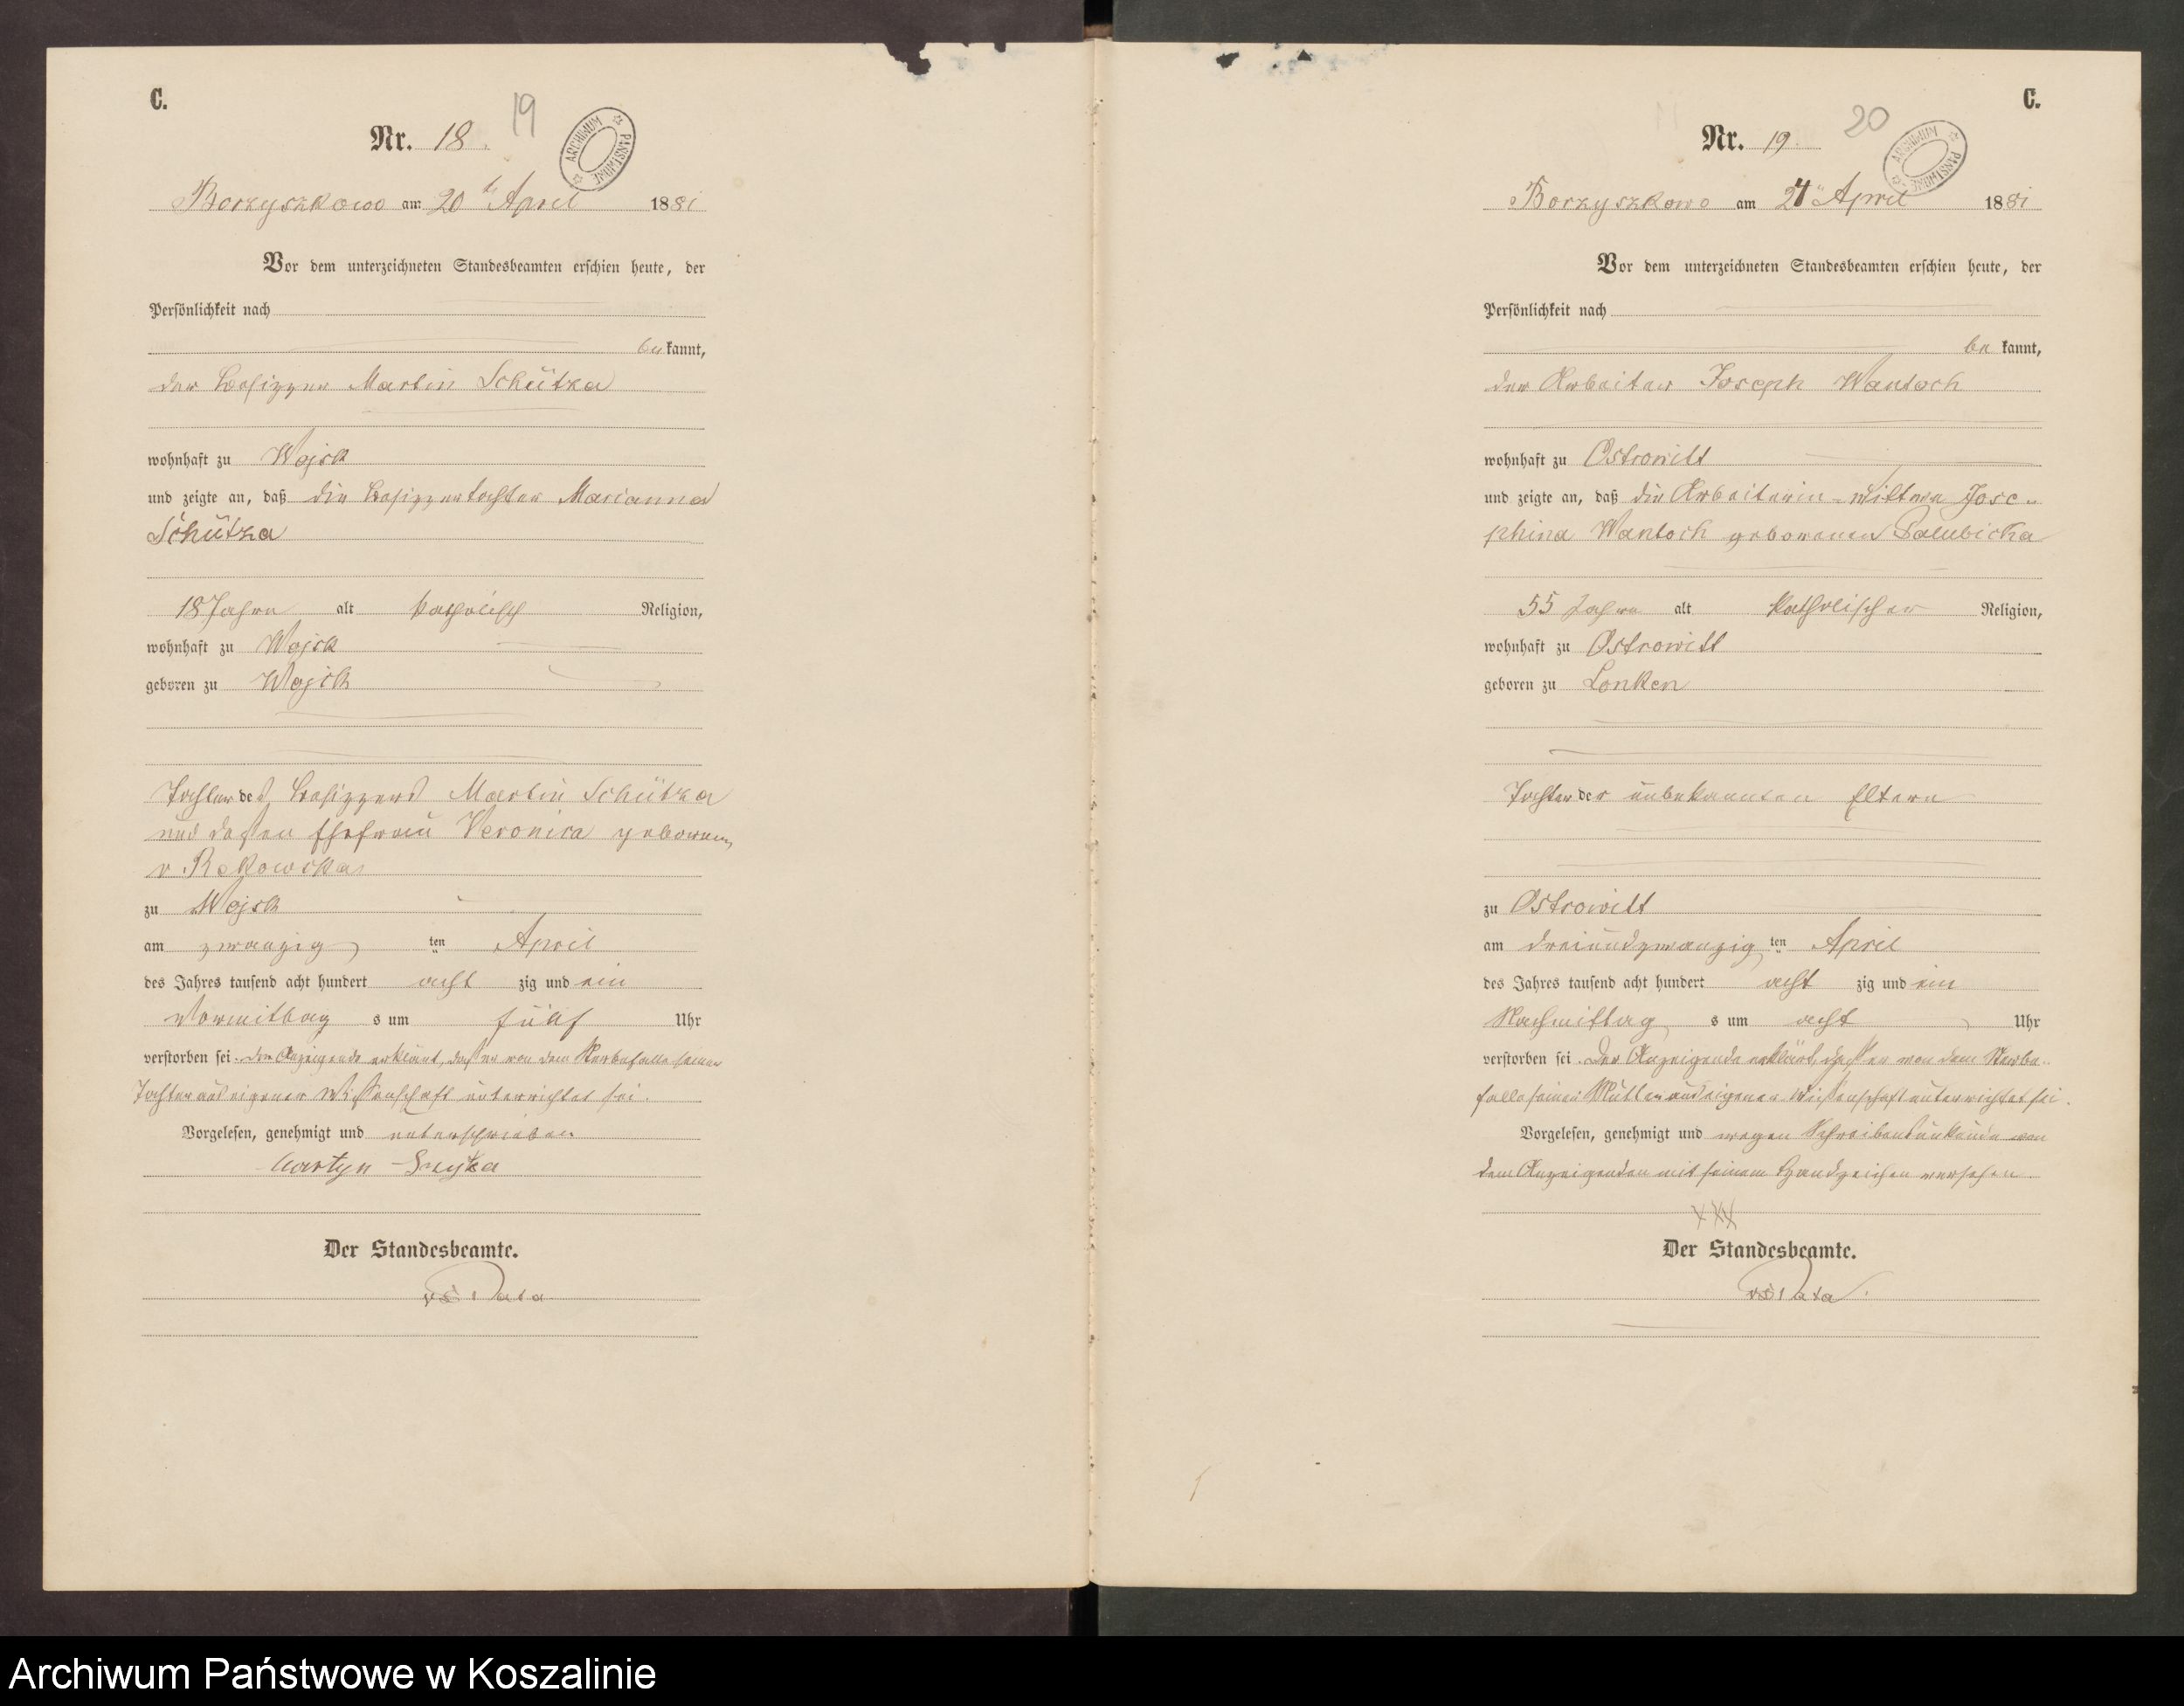 C.
Nr. 18. 19
ARCHIWUM PAŃSTWOWE
Borzyszkowo am 20 te April 1881
Vor dem unterzeichneten Standesbeamten erschien heute, der
Persönlichkeit nach
be kannt,
der Besitzer Martin Schütza
wohnhaft zu Wojsk
und zeigte an, daß die Besitzertochter Marianna
Schütza
18 Jahre alt katholisch Religion,
wohnhaft zu Wojsk
geboren zu Wojsk
Tochter des Besitzers Martin Schütza
und dessen Ehefrau Veronica geborenen
v. Rekowska
zu Wojsk
am zwanzig ten April
des Jahres tausend acht hundert acht zig und ein
Vormittag s um fünf Uhr
verstorben sei. Der Anzeigende erklärt, daß er von dem Sterbefalle seiner
Tochter aus eigener Wissenschaft unterrichtet sei.
Vorgelesen, genehmigt und unterschrieben
Martyn Szyca
Der Standesbeamte.
C.
Nr. 19. 20
ARCHIWUM PAŃSTWOWE
Borzyszkowo am 24 te April 1881
Vor dem unterzeichneten Standesbeamten erschien heute, der
Persönlichkeit nach
be kannt,
der Arbeiter Joseph Wantoch
wohnhaft zu Ostrowitt
und zeigte an, daß die Arbeiterin-Wittwe Jose-
phina Wantoch geborenen Salubicka
55 Jahre alt katholischer Religion,
wohnhaft zu Ostrowitt
geboren zu Lonken
Tochter der unbekannten Eltern
zu Ostrowitt
am dreiundzwanzig ten April
des Jahres tausend acht hundert acht zig und ein
Nachmittag s um acht Uhr
verstorben sei. Der Anzeigende erklärt, daß er von dem Sterbe-
falle seiner Mutter aus eigener Wissenschaft unterrichtet sei.
Vorgelesen, genehmigt und wegen Schreibensunkunde von
dem Anzeigenden mit seinem Handzeichen versehen.
XXX
Der Standesbeamte.
Archiwum Państwowe w Koszalinie